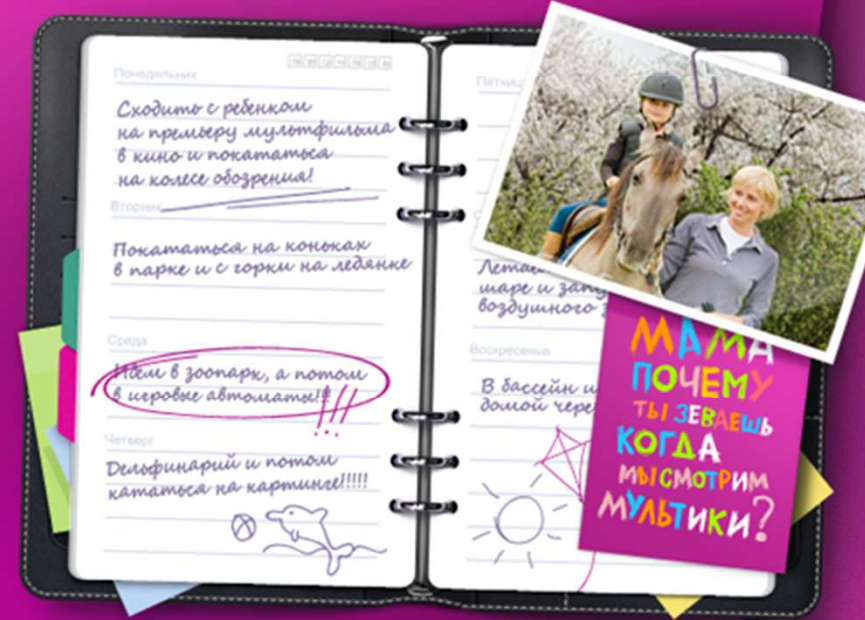 Понедельник
Сходить с ребенком
на премьеру мультфильма
в кино и покататься
на колесе обозрения!
Вторник
Покататься на коньках
в парке и с горки на ледянке
Среда
Идем в зоопарк, а потом
в игровые автоматы!!!
Четверг
Дельфинарий и потом
кататься на картинге!!!!!
шаре и
воздушного
Воскресенье
В бассейн и
домой
МАМА
ПОЧЕМУ
ТЫ ЗЕВАЕШЬ
КОГДА
МЫ СМОТРИМ
МУЛЬТИКИ?